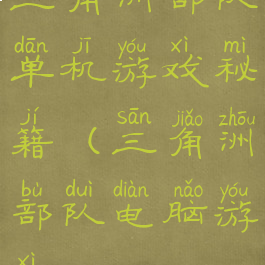 三角洲部队
dān jī yóu xì mì
单机游戏秘
jí sān jiǎo zhōu
籍（三角洲
bù duì diàn nǎo yóu
部队电脑游
xì